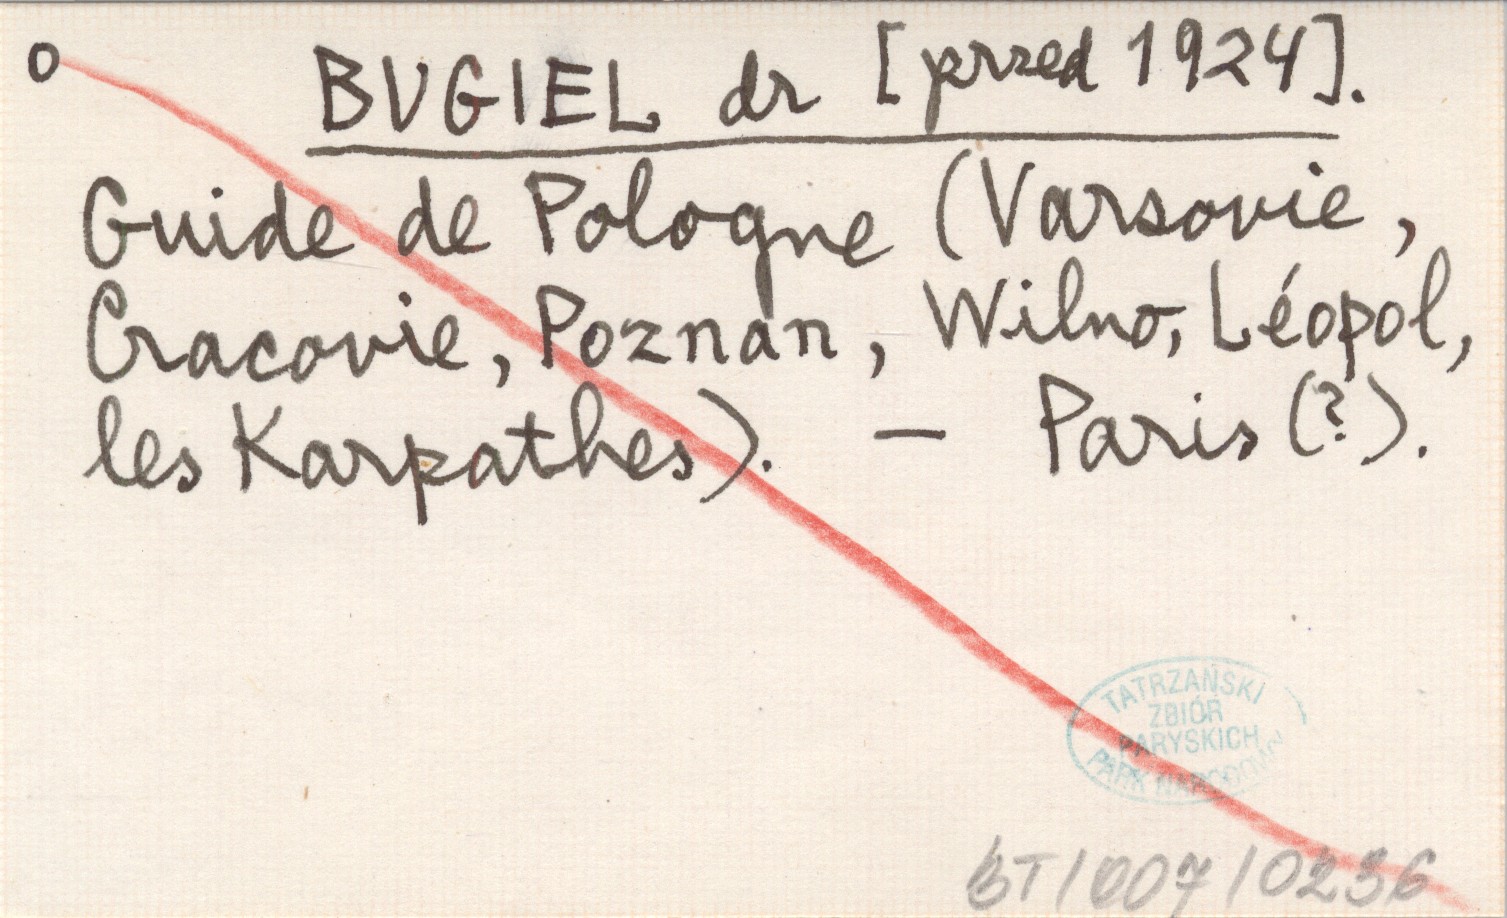 o BUGIEL dr [przed 1924].
Guide de Pologne (Varsovie,
Cracovie, Poznan, Wilno, Léopol,
les Karpathes). — Paris (?).
TATRZAŃSKI
ZBIÓR
PARYSKICH
PARK NARODOWY
BT/007/0236